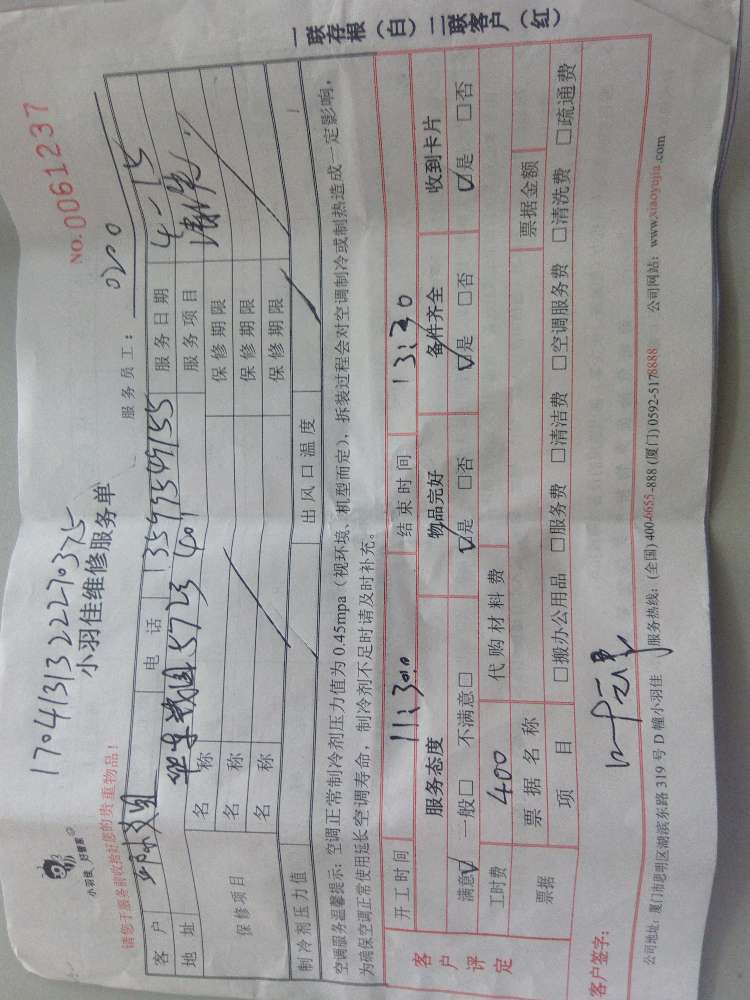 NO.0061237
17041313222270375
小羽佳 好管家
小羽佳维修服务单
请您于服务前收拾好您的贵重物品！
服务员工：0200
客户 电话 13593549155 服务日期 4-15
地址 5723 401 服务项目
保修项目
名称 保修期限
名称 保修期限
名称 保修期限
制冷剂压力值 出风口温度
空调服务温馨提示：空调正常制冷剂压力值为0.45mpa（视环境、机型而定），拆装过程会对空调制冷或制热造成一定影响，
为确保空调正常使用延长空调寿命，制冷剂不足时请及时补充。
开工时间 11:30 结束时间 13:30
客户评定
服务态度 物品完好 备件齐全 收到卡片
满意☑ 一般□ 不满意□ ☑是 □否 ☑是 □否 ☑是 □否
工时费 400 代购材料费
票据 票据名称 票据金额
项目 □搬办公用品 □服务费 □清洁费 □空调服务费 □清洗费 □疏通费
客户签字：
公司地址：厦门市思明区湖滨东路319号D幢小羽佳 服务热线：(全国)400-6655-888(厦门)0592-5178888 公司网站：www.xiaoyujia.com
一联存根（白）二联客户（红）